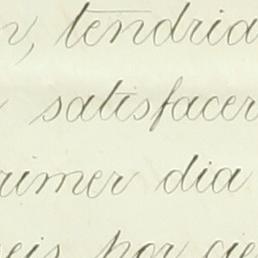 n, tendria
satisfacer
rimer dia
eis por cie